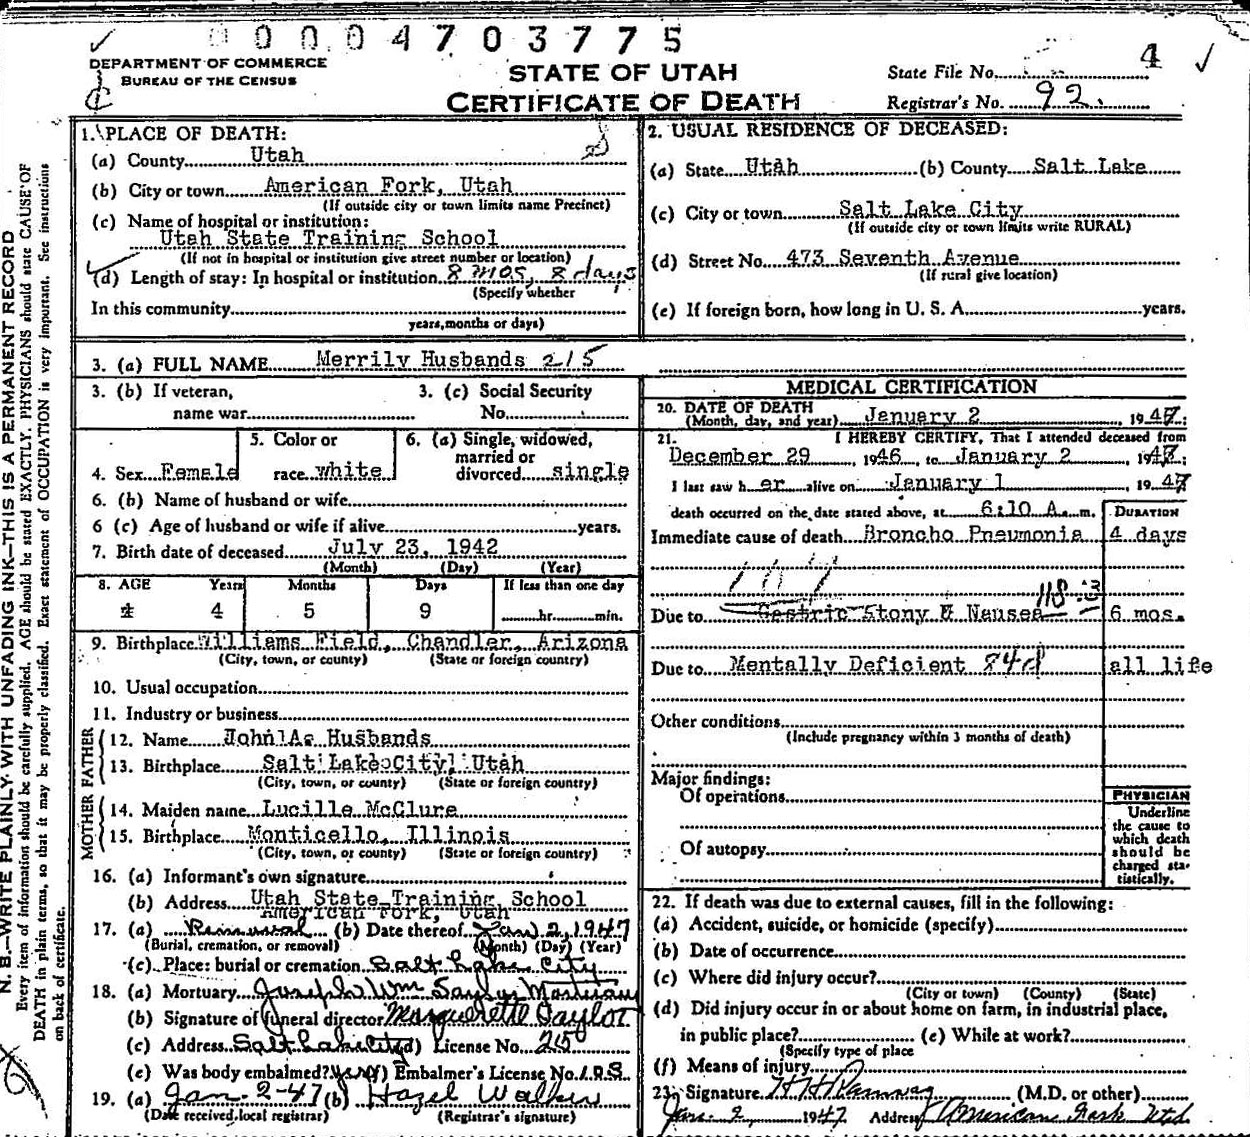 0000 4703775
DEPARTMENT OF COMMERCE
BUREAU OF THE CENSUS
STATE OF UTAH
CERTIFICATE OF DEATH
State File No. 4
Registrar's No. 92.
N. B.—WRITE PLAINLY WITH UNFADING INK—THIS IS A PERMANENT RECORD
Every item of information should be carefully supplied. AGE should be stated EXACTLY. PHYSICIANS should state CAUSE OF
DEATH in plain terms, so that it may be properly classified. Exact statement of OCCUPATION is very important. See instructions
on back of certificate.
1. PLACE OF DEATH:
(a) County Utah
(b) City or town American Fork, Utah
(If outside city or town limits name Precinct)
(c) Name of hospital or institution:
Utah State Training School
(If not in hospital or institution give street number or location)
(d) Length of stay: In hospital or institution 8 mos, 8 days
(Specify whether
In this community
years, months or days)
2. USUAL RESIDENCE OF DECEASED:
(a) State Utah (b) County Salt Lake
(c) City or town Salt Lake City
(If outside city or town limits write RURAL)
(d) Street No. 473 Seventh Avenue
(If rural give location)
(e) If foreign born, how long in U. S. A. years.
3. (a) FULL NAME Merrily Husbands 215
3. (b) If veteran,
name war
3. (c) Social Security
No.
4. Sex Female
5. Color or
race white
6. (a) Single, widowed,
married or
divorced single
6. (b) Name of husband or wife
6 (c) Age of husband or wife if alive years.
7. Birth date of deceased July 23, 1942
(Month) (Day) (Year)
8. AGE Years Months Days If less than one day
4 4 5 9 hr. min.
9. Birthplace Williams Field, Chandler, Arizona
(City, town, or county) (State or foreign country)
10. Usual occupation
11. Industry or business
FATHER
12. Name John A. Husbands
13. Birthplace Salt Lake City, Utah
(City, town, or county) (State or foreign country)
MOTHER
14. Maiden name Lucille McClure
15. Birthplace Monticello, Illinois
(City, town, or county) (State or foreign country)
16. (a) Informant's own signature
(b) Address Utah State Training School
American Fork, Utah
17. (a) Removal (b) Date thereof Jan 2, 1947
(Burial, cremation, or removal) (Month) (Day) (Year)
(c) Place: burial or cremation Salt Lake City
18. (a) Mortuary Joseph Wm Taylor Mortuary
(b) Signature of funeral director Marguerette Taylor
(c) Address Salt Lake City (d) License No. 215
(e) Was body embalmed? yes (f) Embalmer's License No.
19. (a) Jan. 2-47 (b) Hazel Walker
(Date received local registrar) (Registrar's signature)
MEDICAL CERTIFICATION
20. DATE OF DEATH
(Month, day, and year) January 2, 1947:
21. I HEREBY CERTIFY, That I attended deceased from
December 29, 1946, to January 2, 1947;
I last saw h er alive on January 1, 1947
death occurred on the date stated above, at 6:10 A. m.
DURATION
Immediate cause of death Broncho Pneumonia 4 days
Due to Gastric Stony & Nausea 118 6 mos.
Due to Mentally Deficient 84d all life
Other conditions
(Include pregnancy within 3 months of death)
Major findings:
Of operations
Of autopsy
PHYSICIAN
Underline
the cause to
which death
should be
charged sta-
tistically.
22. If death was due to external causes, fill in the following:
(a) Accident, suicide, or homicide (specify)
(b) Date of occurrence
(c) Where did injury occur?
(City or town) (County) (State)
(d) Did injury occur in or about home on farm, in industrial place,
in public place? (e) While at work?
(Specify type of place
(f) Means of injury
23. Signature (M.D. or other)
Jan. 2 1947 Address American Fork Utah